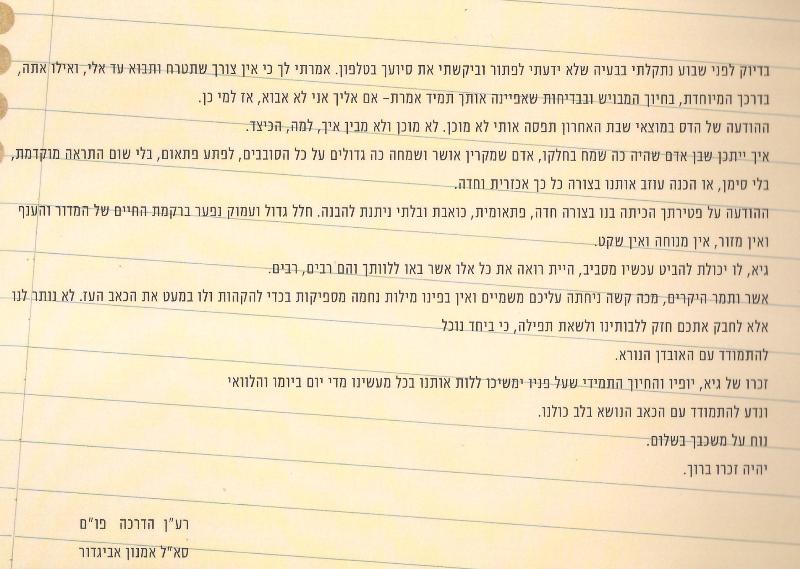 בדיוק לפני שבוע נתקלתי בבעיה שלא ידעתי לפתור וביקשתי את סיועך בטלפון. אמרתי לך כי אין צורך שתטרח ותבוא עד אלי, ואילו אתה,
בדרכך המיוחדת, בחיוך המבויש ובבדיחות שאפיינה אותך תמיד אמרת- אם אליך אני לא אבוא, אז למי כן.
ההודעה של הדס במוצאי שבת האחרון תפסה אותי לא מוכן. לא מוכן ולא מבין איך, למה, הכיצד.
איך ייתכן שבן אדם שהיה כה שמח בחלקו, אדם שמקרין אושר ושמחה כה גדולים על כל הסובבים, לפתע פתאום, בלי שום התראה מוקדמת,
בלי סימן, או הכנה עוזב אותנו בצורה כל כך אכזרית וחדה.
ההודעה על פטירתך הכיתה בנו בצורה חדה, פתאומית, כואבת ובלתי ניתנת להבנה. חלל גדול ועמוק נפער ברקמת החיים של המדור והענף
ואין מזור, אין מנוחה ואין שקט.
גיא, לו יכולת להביט עכשיו מסביב, היית רואה את כל אלו אשר באו ללוותך והם רבים, רבים.
אשר ותמר היקרים, מכה קשה ניחתה עליכם משמיים ואין בפינו מילות נחמה מספיקות בכדי להקהות ולו במעט את הכאב העז. לא נותר לנו
אלא לחבק אתכם חזק ללבותינו ולשאת תפילה, כי ביחד נוכל
להתמודד עם האובדן הנורא.
זכרו של גיא, יופיו והחיוך התמידי שעל פניו ימשיכו ללות אותנו בכל מעשינו מדי יום ביומו והלוואי
ונדע להתמודד עם הכאב הנושא בלב כולנו.
נוח על משכבך בשלום.
יהיה זכרו ברוך.
רע"ן הדרכה פו"ם
סא"ל אמנון אביגדור